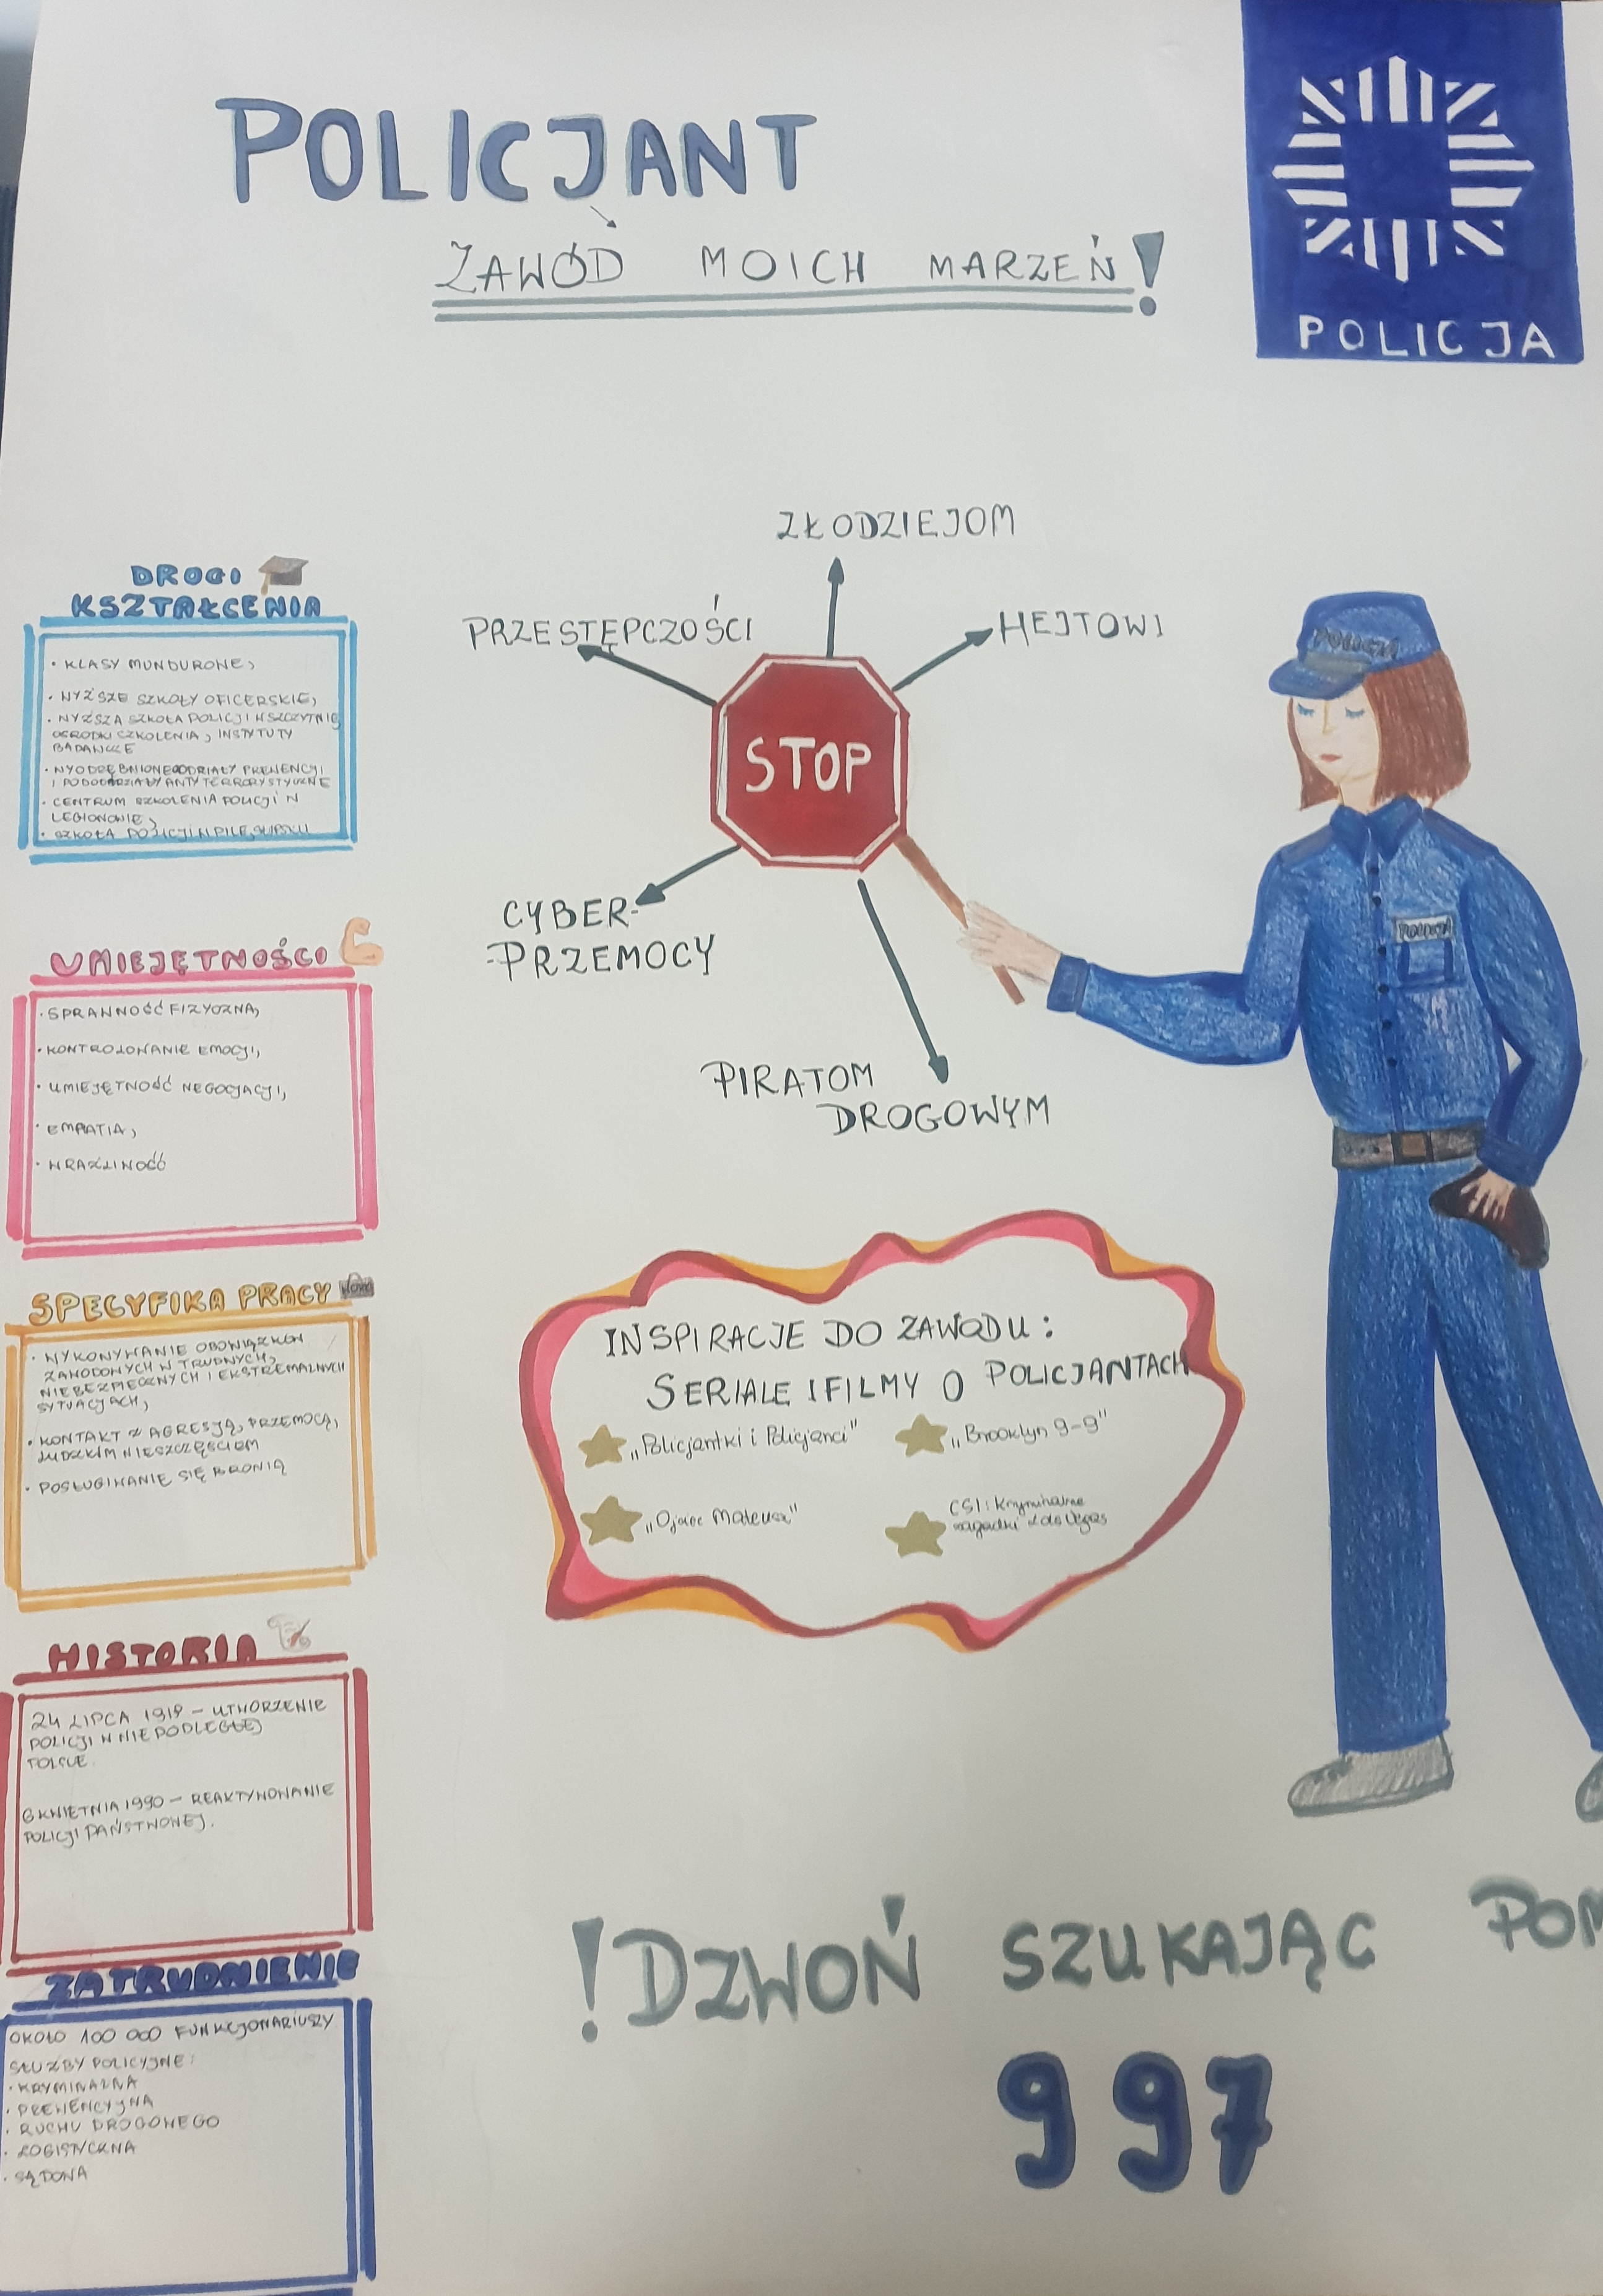 POLICJANT
ZAWÓD MOICH MARZEŃ!
POLICJA
ZŁODZIEJOM
PRZESTĘPCZOŚCI
HEJTOWI
STOP
CYBER-
-PRZEMOCY
PIRATOM
DROGOWYM
POLICJA
POLICJA
DROGI
KSZTAŁCENIA
• KLASY MUNDUROWE,
• WYŻSZE SZKOŁY OFICERSKIE,
• WYŻSZA SZKOŁA POLICJI W SZCZYTNIE
OŚRODKI SZKOLENIA, INSTYTUTY
BADAWCZE
• WYODRĘBNIONE ODDZIAŁY PREWENCJI
I PODODDZIAŁY ANTYTERRORYSTYCZNE
• CENTRUM SZKOLENIA POLICJI W
LEGIONOWIE,
• SZKOŁA POLICJI W PILE, SŁUPSKU
UMIEJĘTNOŚCI
• SPRAWNOŚĆ FIZYCZNA,
• KONTROLOWANIE EMOCJI,
• UMIEJĘTNOŚĆ NEGOCJACJI,
• EMPATIA,
• WRAŻLIWOŚĆ
SPECYFIKA PRACY
• WYKONYWANIE OBOWIĄZKÓW
ZAWODOWYCH W TRUDNYCH,
NIEBEZPIECZNYCH I EKSTREMALNYCH
SYTUACJACH,
• KONTAKT Z AGRESJĄ, PRZEMOCĄ,
LUDZKIM NIESZCZĘŚCIEM
• POSŁUGIWANIE SIĘ BRONIĄ
INSPIRACJE DO ZAWODU:
SERIALE I FILMY O POLICJANTACH
„Policjantki i Policjanci"
„Brooklyn 9-9"
„Ojciec Mateusz"
CSI: Kryminalne
zagadki Las Vegas
HISTORIA
24 LIPCA 1919 – UTWORZENIE
POLICJI W NIEPODLEGŁEJ
POLSCE.
6 KWIETNIA 1990 – REAKTYWOWANIE
POLICJI PAŃSTWOWEJ.
ZATRUDNIENIE
OKOŁO 100 000 FUNKCJONARIUSZY
SŁUŻBY POLICYJNE:
• KRYMINALNA
• PREWENCYJNA
• RUCHU DROGOWEGO
• LOGISTYCZNA
• SĄDOWA
!DZWOŃ SZUKAJĄC POM
997